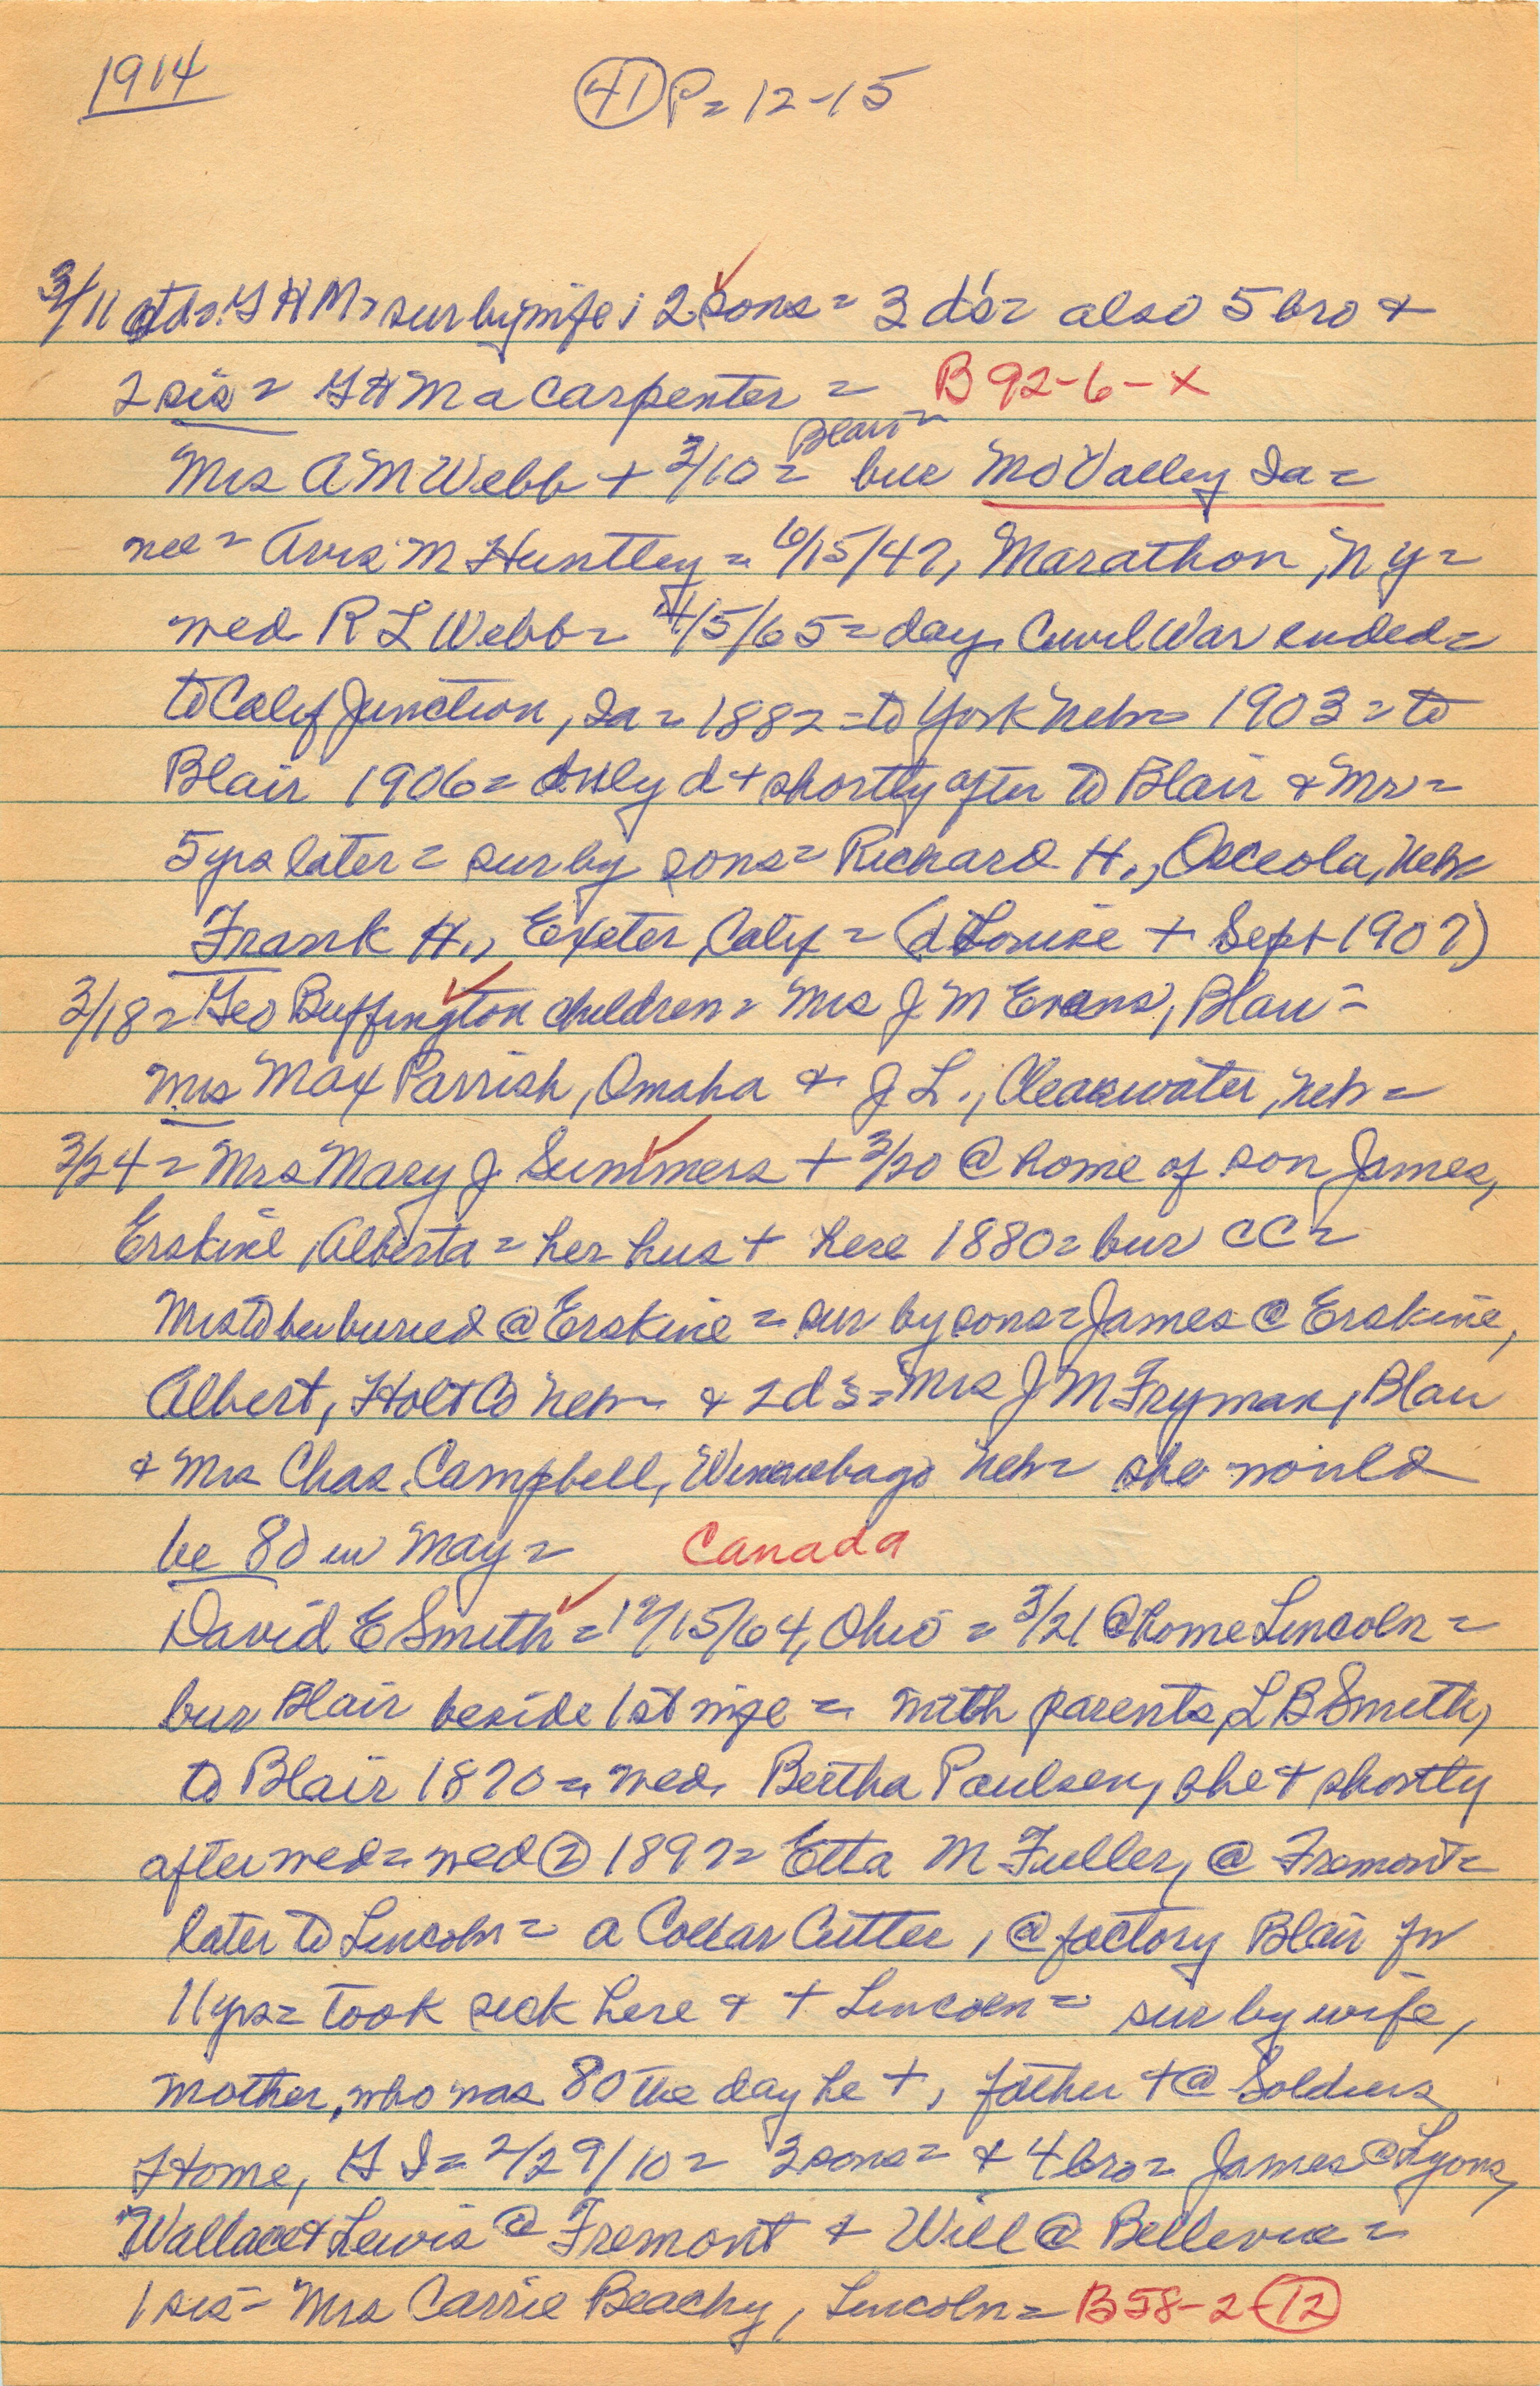 1914
(41) P= 12-15
3/11 ctd= G H M= sur by wife; 2 sons= 3 d's= also 5 bro +
2 sis = G H M a Carpenter = B 92-6-X
Blair=
Mrs A M Webb + 3/10= bur Mo Valley Ia=
nee = Avis M Huntley = 6/15/47, Marathon, N Y=
wed R L Webb= 4/15/65= day Civil War ended=
to Calif Junction, Ia = 1882 =to York Nebr= 1903= to
Blair 1906= only d + shortly after to Blair & Mr=
5 yrs later = sur by sons= Richard H., Osceola, Nebr
Frank H., Exeter, Calif = (d Louise + Sept 1907)
3/18= Geo Buffington children= Mrs J M Evans, Blair=
Mrs Max Parrish, Omaha & J L., Clearwater, Neb=
3/24 = Mrs Mary J Summers + 3/20 @ home of son James,
Erskine, Alberta = her hus + here 1880= bur CC=
Mrs to be buried @ Erskine = sur by sons= James @ Erskine,
Albert, Holt Co Nebr & 2 d's= Mrs J M Fryman, Blair
& Mrs Chas. Campbell, Winnebago Neb= she would
be 80 in May= Canada
David E Smith = 12/15/64, Ohio = 3/21 @ home Lincoln =
bur Blair beside 1st wife = with parents, L B Smith,
to Blair 1870 = wed Bertha Paulsen, she + shortly
after wed= wed (2) 1897= Etta M Fuller, @ Fremont=
later to Lincoln = a Collar Cutter, @ factory Blair for
11 yrs= took sick here & + Lincoln= sur by wife,
mother, who was 80 the day he +, father + @ Soldiers
Home, G I= 2/29/10= 3 sons= & 4 bro= James @ Lyons,
Wallace & Lewis @ Fremont & Will @ Bellevue =
1 sis= Mrs Carrie Beachy, Lincoln= B58-2-(12)